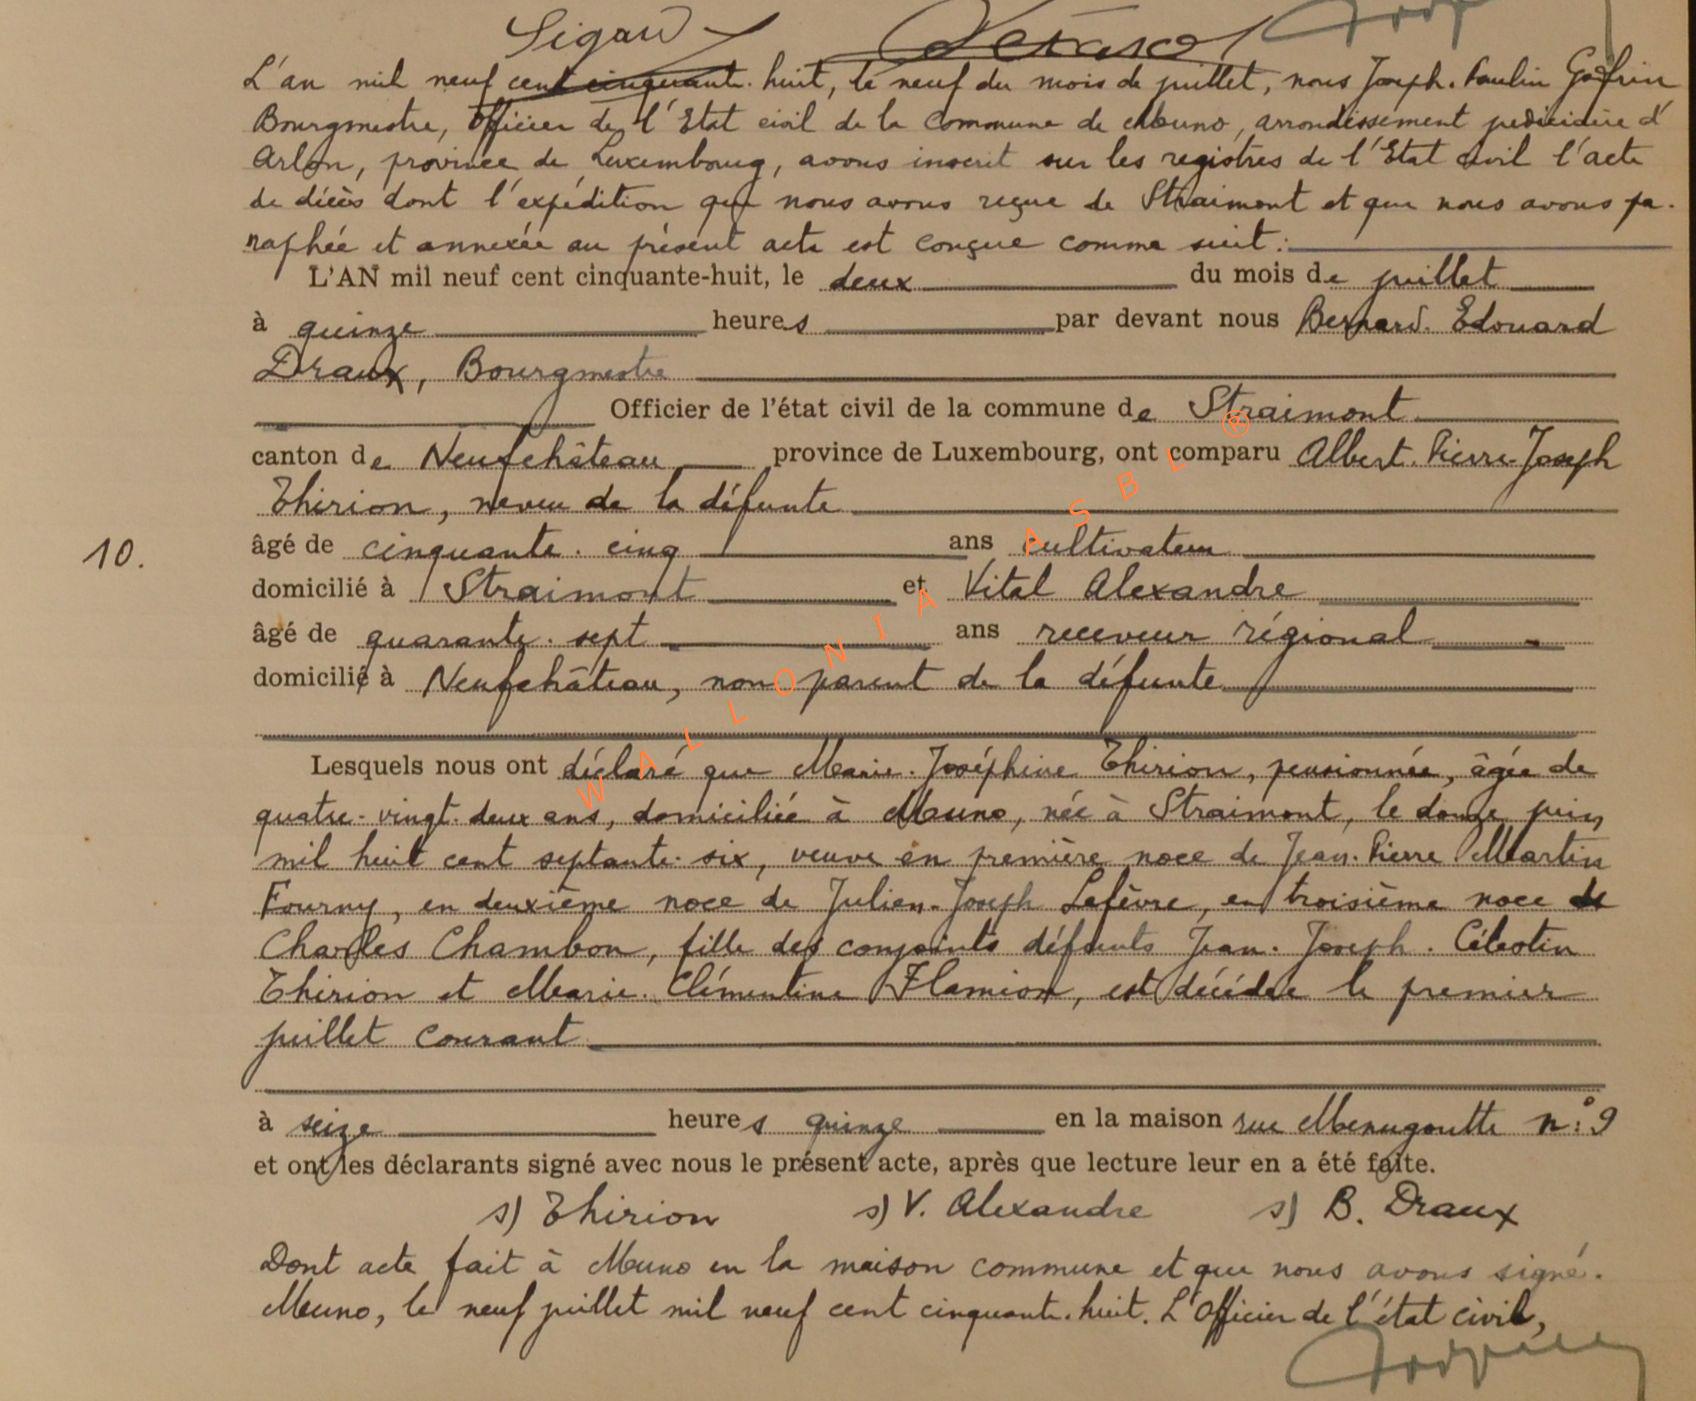 Sigaud
L'an mil neuf cent cinquante-huit, le neuf du mois de juillet, nous Joseph-Paulin
Bourgmestre, Officier de l'Etat civil de la Commune de Muno, arrondissement judiciaire d'
Arlon, province de Luxembourg, avons inscrit sur les registres de l'Etat civil l'acte
de décès dont l'expédition que nous avons reçue de Straimont et que nous avons pa-
raphée et annexée au présent acte est conçue comme suit:
L'AN mil neuf cent cinquante-huit, le deux du mois de juillet
à quinze heures par devant nous Bernard-Edouard
Draux, Bourgmestre
Officier de l'état civil de la commune de Straimont
canton de Neufchâteau province de Luxembourg, ont comparu Albert-Pierre-Joseph
Thirion, neveu de la défunte
10. âgé de cinquante-cinq ans cultivateur
domicilié à Straimont et Vital Alexandre
âgé de quarante-sept ans receveur régional
domicilié à Neufchâteau, non parent de la défunte
WALLONIA ASBL ®
Lesquels nous ont déclaré que Marie-Joséphine Thirion, pensionnée, âgée de
quatre-vingt-deux ans, domiciliée à Muno, née à Straimont, le douze juin
mil huit cent septante-six, veuve en première noce de Jean-Pierre Martin
Fourny, en deuxième noce de Julien-Joseph Lefèvre, en troisième noce de
Charles Chambon, fille des conjoints défunts Jean-Joseph-Célestin
Thirion et Marie-Clémentine Flamion, est décédée le premier
juillet courant
à seize heures quinze en la maison rue Menugoutte n:° 9
et ont les déclarants signé avec nous le présent acte, après que lecture leur en a été faite.
s) Thirion s) V. Alexandre s) B. Draux
Dont acte fait à Muno en la maison commune et que nous avons signé.
Muno, le neuf juillet mil neuf cent cinquante-huit. L'Officier de l'état civil,